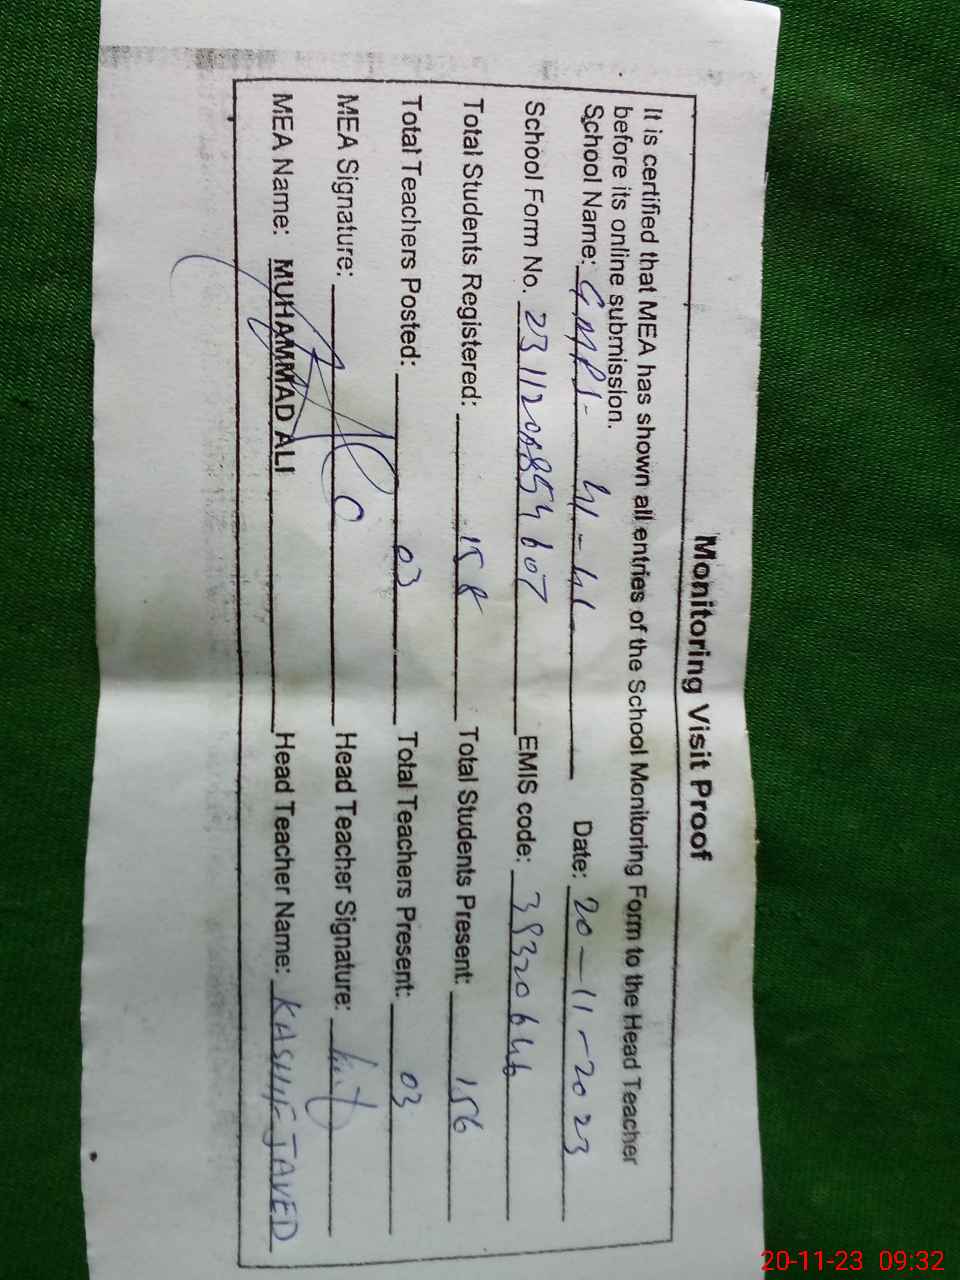 Monitoring Visit Proof
It is certified that MEA has shown all entries of the School Monitoring Form to the Head Teacher
before its online submission.
School Name: GMPS- Date: 20-11-2023
School Form No. EMIS code:
Total Students Registered: 158 Total Students Present: 156
Total Teachers Posted: 03 Total Teachers Present: 03
MEA Signature: Head Teacher Signature:
MEA Name: MUHAMMAD ALI Head Teacher Name: KASHIF JAVED
20-11-23 09:32